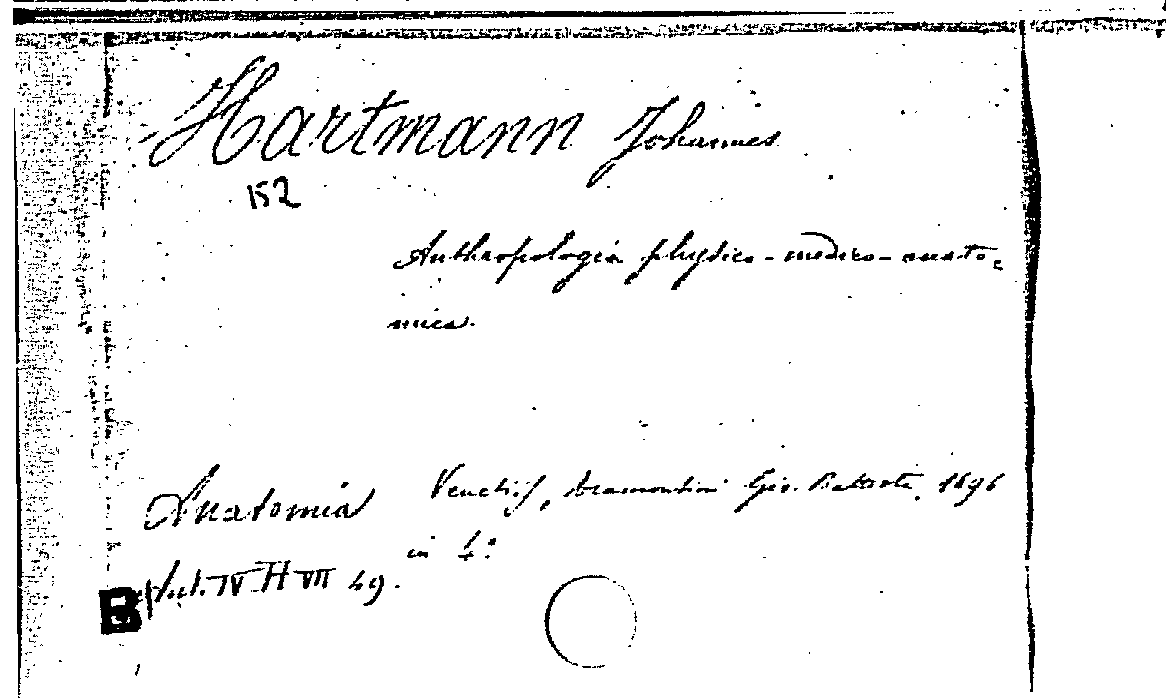 Hartmann Johannes
152
Anthropologia physico-medico-anato-
mica.
Anatomia Venetijs, Tramontini Gio. Battista, 1696
in 4:
B Ant. IV H VII 49.